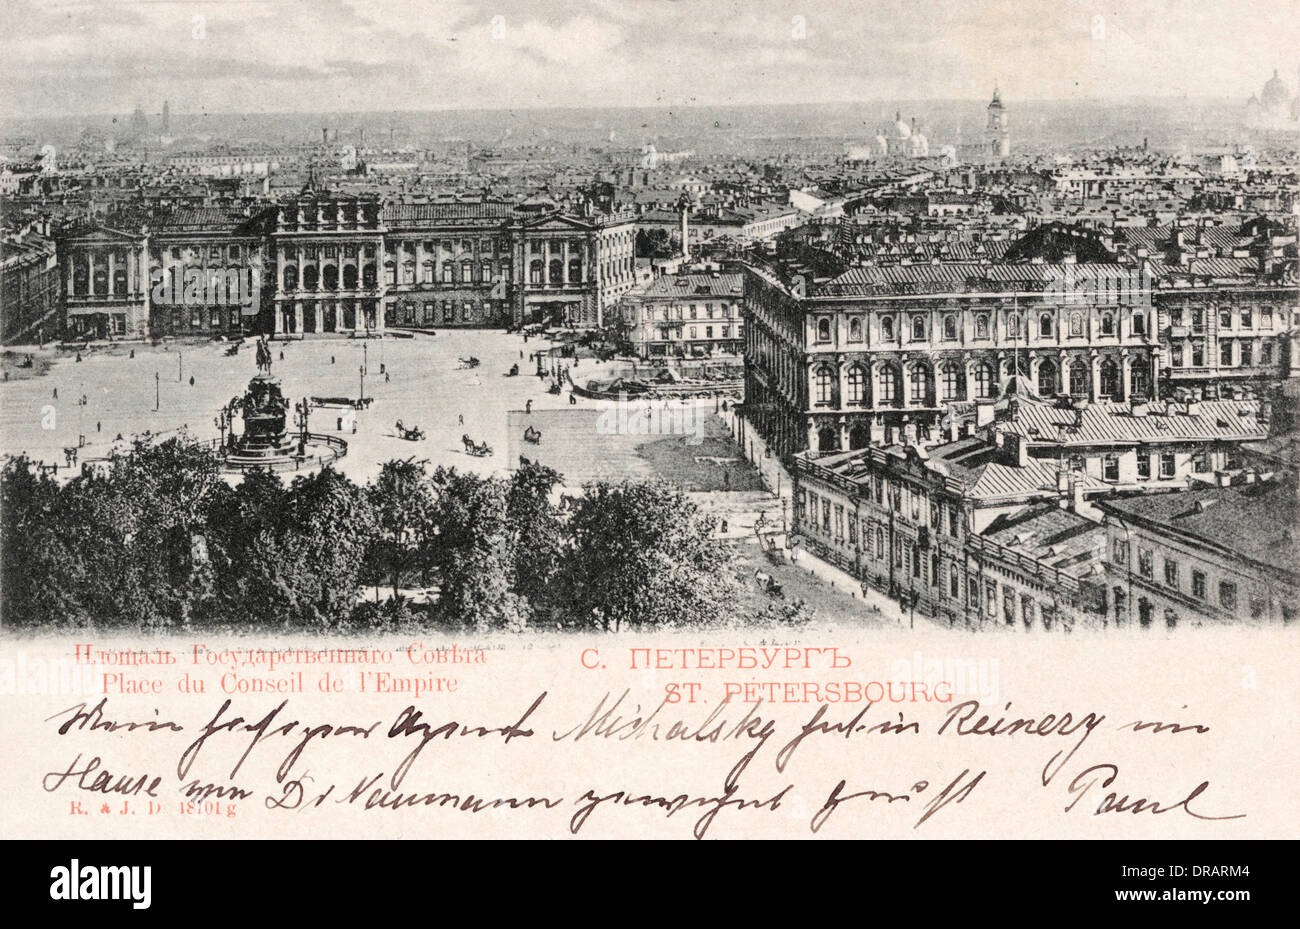 Площадь Государственнаго Совѣта
Place du Conseil de l'Empire
С. ПЕТЕРБУРГЪ
ST. PÉTERSBOURG
Mein Agent Michalsky hat in Reinerz im
Hause von Dr Naumann gewohnt Paul
R. & J. D. 18101 g
alamy
Image ID: DRARM4
www.alamy.com